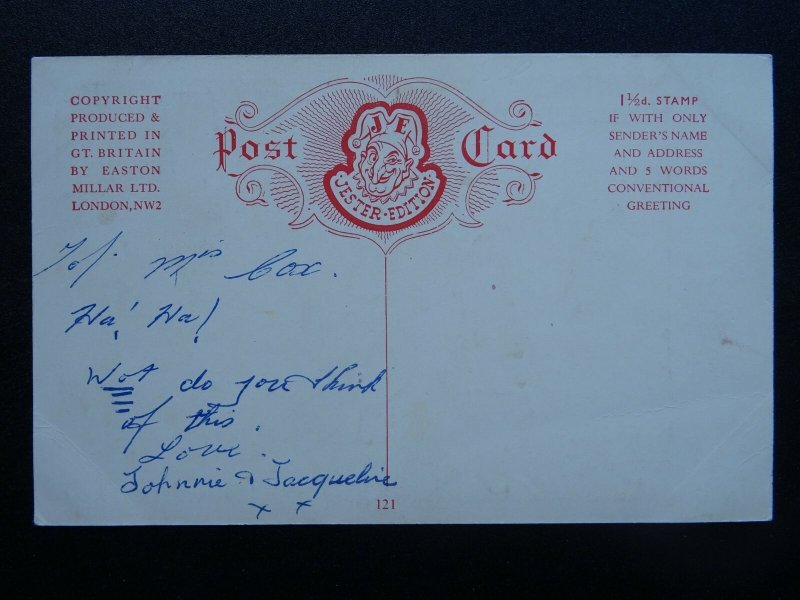 COPYRIGHT
PRODUCED &
PRINTED IN
GT. BRITAIN
BY EASTON
MILLAR LTD.
LONDON, NW2
Post Card
J E
JESTER·EDITION·
1½d. STAMP
IF WITH ONLY
SENDER'S NAME
AND ADDRESS
AND 5 WORDS
CONVENTIONAL
GREETING
To/. Mrs Cox.
Ha! Ha!
Wot do you think
of this.
Love.
Johnnie & Jacqueline
x x
121